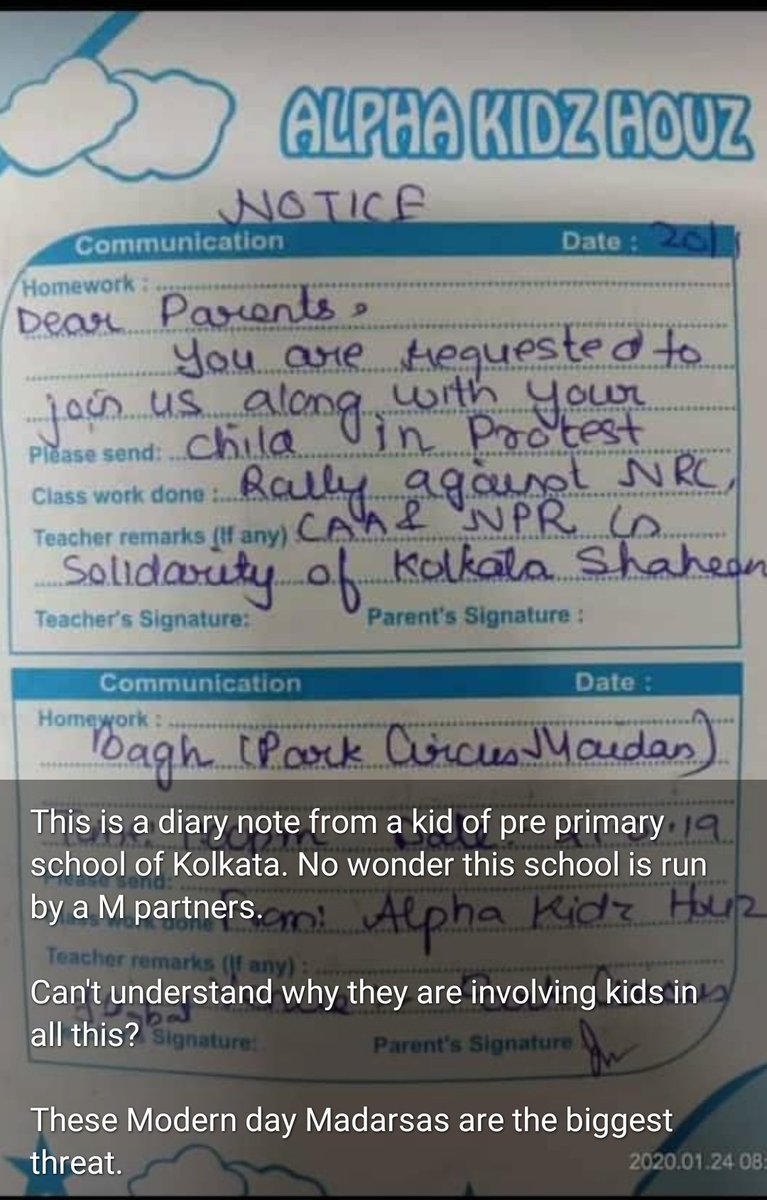 ALPHA KIDZ HOUZ
NOTICE
Communication Date : 20/1
Homework :
Dear Parents,
You are requested to
join us along with your
Please send: child in Protest
Class work done : Rally against NRC,
Teacher remarks (If any) CAA & NPR in
Solidarity of Kolkata Shaheen
Teacher's Signature: Parent's Signature :
Communication Date :
Homework :
Bagh (Park Circus Maidan)
This is a diary note from a kid of pre primary
19
school of Kolkata. No wonder this school is run
Please send:
by a M partners.
From: Alpha Kidz Houz
Teacher remarks (If any) :
Can't understand why they are involving kids in
Circus
all this?
Signature: Parent's Signature
These Modern day Madarsas are the biggest
threat.
2020.01.24 08: